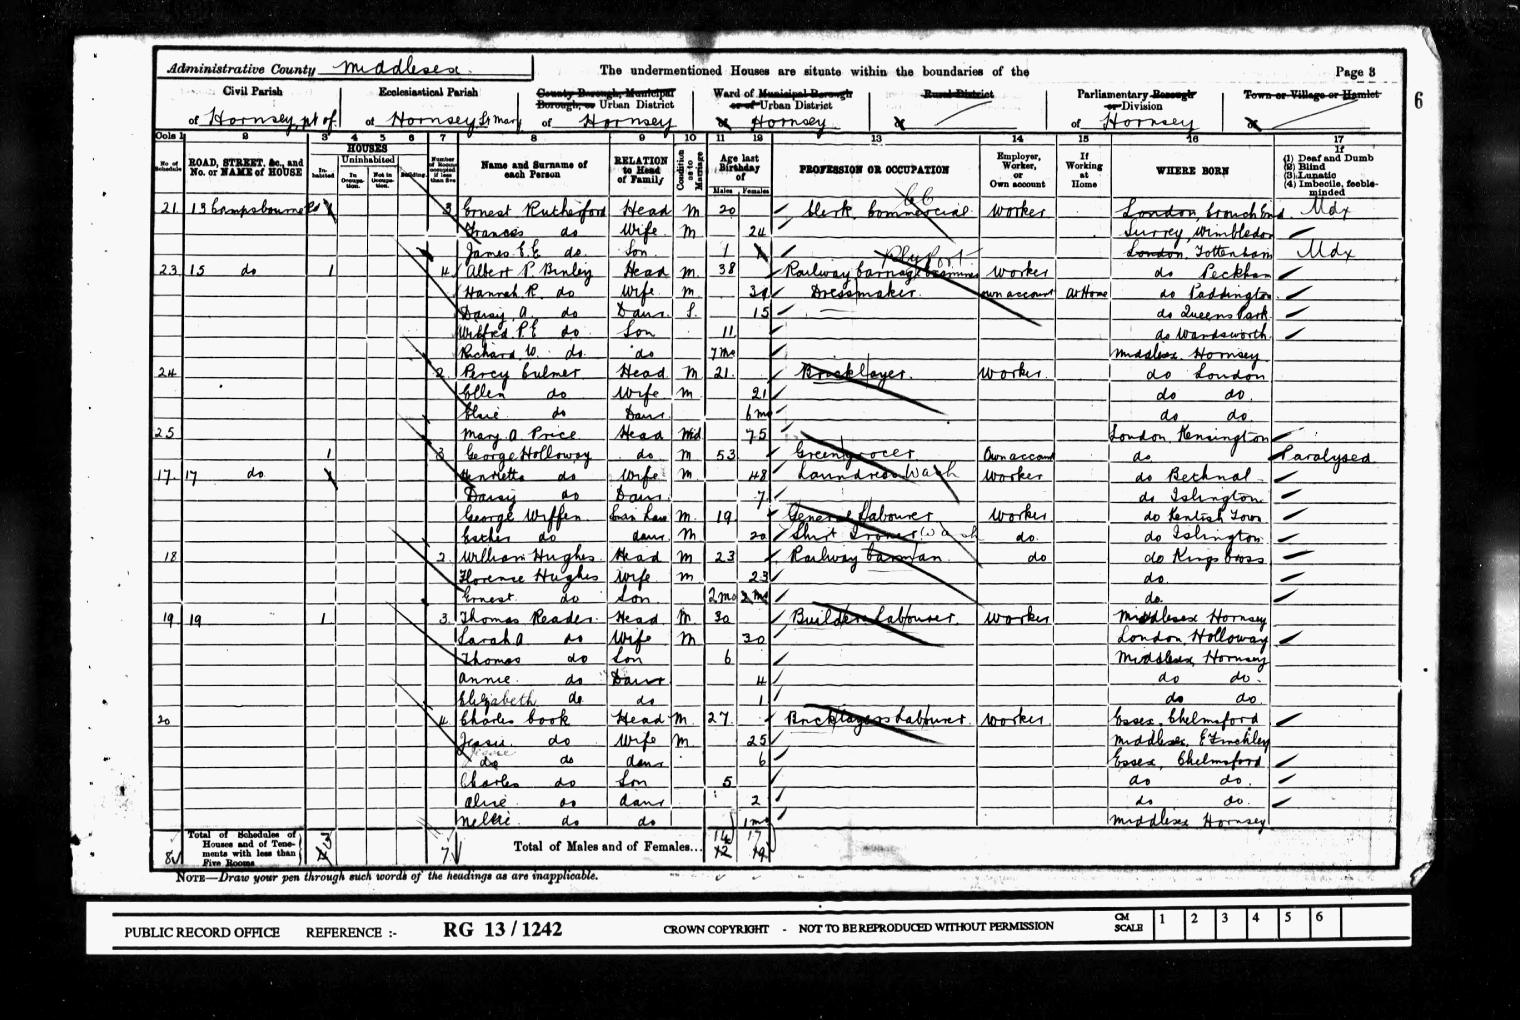 Administrative County Middlesex. The undermentioned Houses are situate within the boundaries of the Page 3
Civil Parish Ecclesiastical Parish County Borough, Municipal Borough, or Urban District Ward of Municipal Borough or of Urban District Rural District Parliamentary Borough or Division Town or Village or Hamlet 6
of Hornsey pt of of Hornsey St Mary of Hornsey of Hornsey of of Hornsey of
Cols 1 2 3 4 5 6 7 8 9 10 11 12 13 14 15 16 17
No. of Schedule ROAD, STREET, &c., and No. or NAME of HOUSE HOUSES Inhabited Uninhabited In Occupation. Not in Occupation. Building Number of Rooms occupied if less than five Name and Surname of each Person RELATION to Head of Family Condition as to Marriage Age last Birthday of Males Females PROFESSION OR OCCUPATION Employer, Worker, or Own account If Working at Home WHERE BORN If (1) Deaf and Dumb (2) Blind (3) Lunatic (4) Imbecile, feeble-minded
21 13 Campsbourne Rd 3 Ernest Rutherford Head M 20 Clerk, Commercial Worker London, Crouch End Mdx
Frances do Wife M 24 Surrey, Wimbledon
James E.E do Son 1 London, Tottenham Mdx
23 15 do 1 4 Albert P. Binley Head M 38 Railway Worker do Peckham
Hannah R. do Wife M Dressmaker own account At Home do Paddington
Daisy A. do Daur S. 15 do Queens Park
Wilfred P.E do Son 11 do Wandsworth
Richard W. do do 7mo Middlesex Hornsey
24 2 Percy Culmer Head M 21 Bricklayer. Worker do London
Ellen do Wife M 21 do do
Elsie do Daur 6mo do do
25 Mary A Price Head Wid 75 London, Kensington
1 3 George Holloway do M 53 Greengrocer Own account do Paralysed
17 17 do Henrietta do Wife M 48 Laundress Wash Worker do Bethnal
Daisy do Daur 7 do Islington
George Wiffen Son in Law M 19 General Labourer Worker do Kentish Town
Esther do daur M 20 Shirt Ironer (Wash do do Islington
18 2 William Hughes Head M 23 Railway Carman do do Kings Cross
Florence Hughes Wife M 23 do
Ernest do Son 2mo 2mo do
19 19 1 3 Thomas Reader Head M 30 Builders Labourer Worker Middlesex Hornsey
Sarah A do Wife M 30 London Holloway
Thomas do Son 6 Middlesex, Hornsey
Annie do Daur 4 do do
Elizabeth do do 1 do do
20 4 Charles Cook Head M 27 Bricklayers Labourer Worker Essex, Chelmsford
Jessie do Wife M 25 Middlesex, E Finchley
do do daur 6 Essex, Chelmsford
Charles do Son 5 do do
Alice do daur 2 do do
Nellie do do 1mo Middlesex Hornsey
8 Total of Schedules of Houses and of Tenements with less than Five Rooms 3 7 Total of Males and of Females... 14 17
12 19
NOTE—Draw your pen through such words of the headings as are inapplicable.
PUBLIC RECORD OFFICE REFERENCE :- RG 13 / 1242 CROWN COPYRIGHT - NOT TO BE REPRODUCED WITHOUT PERMISSION CM SCALE 1 2 3 4 5 6